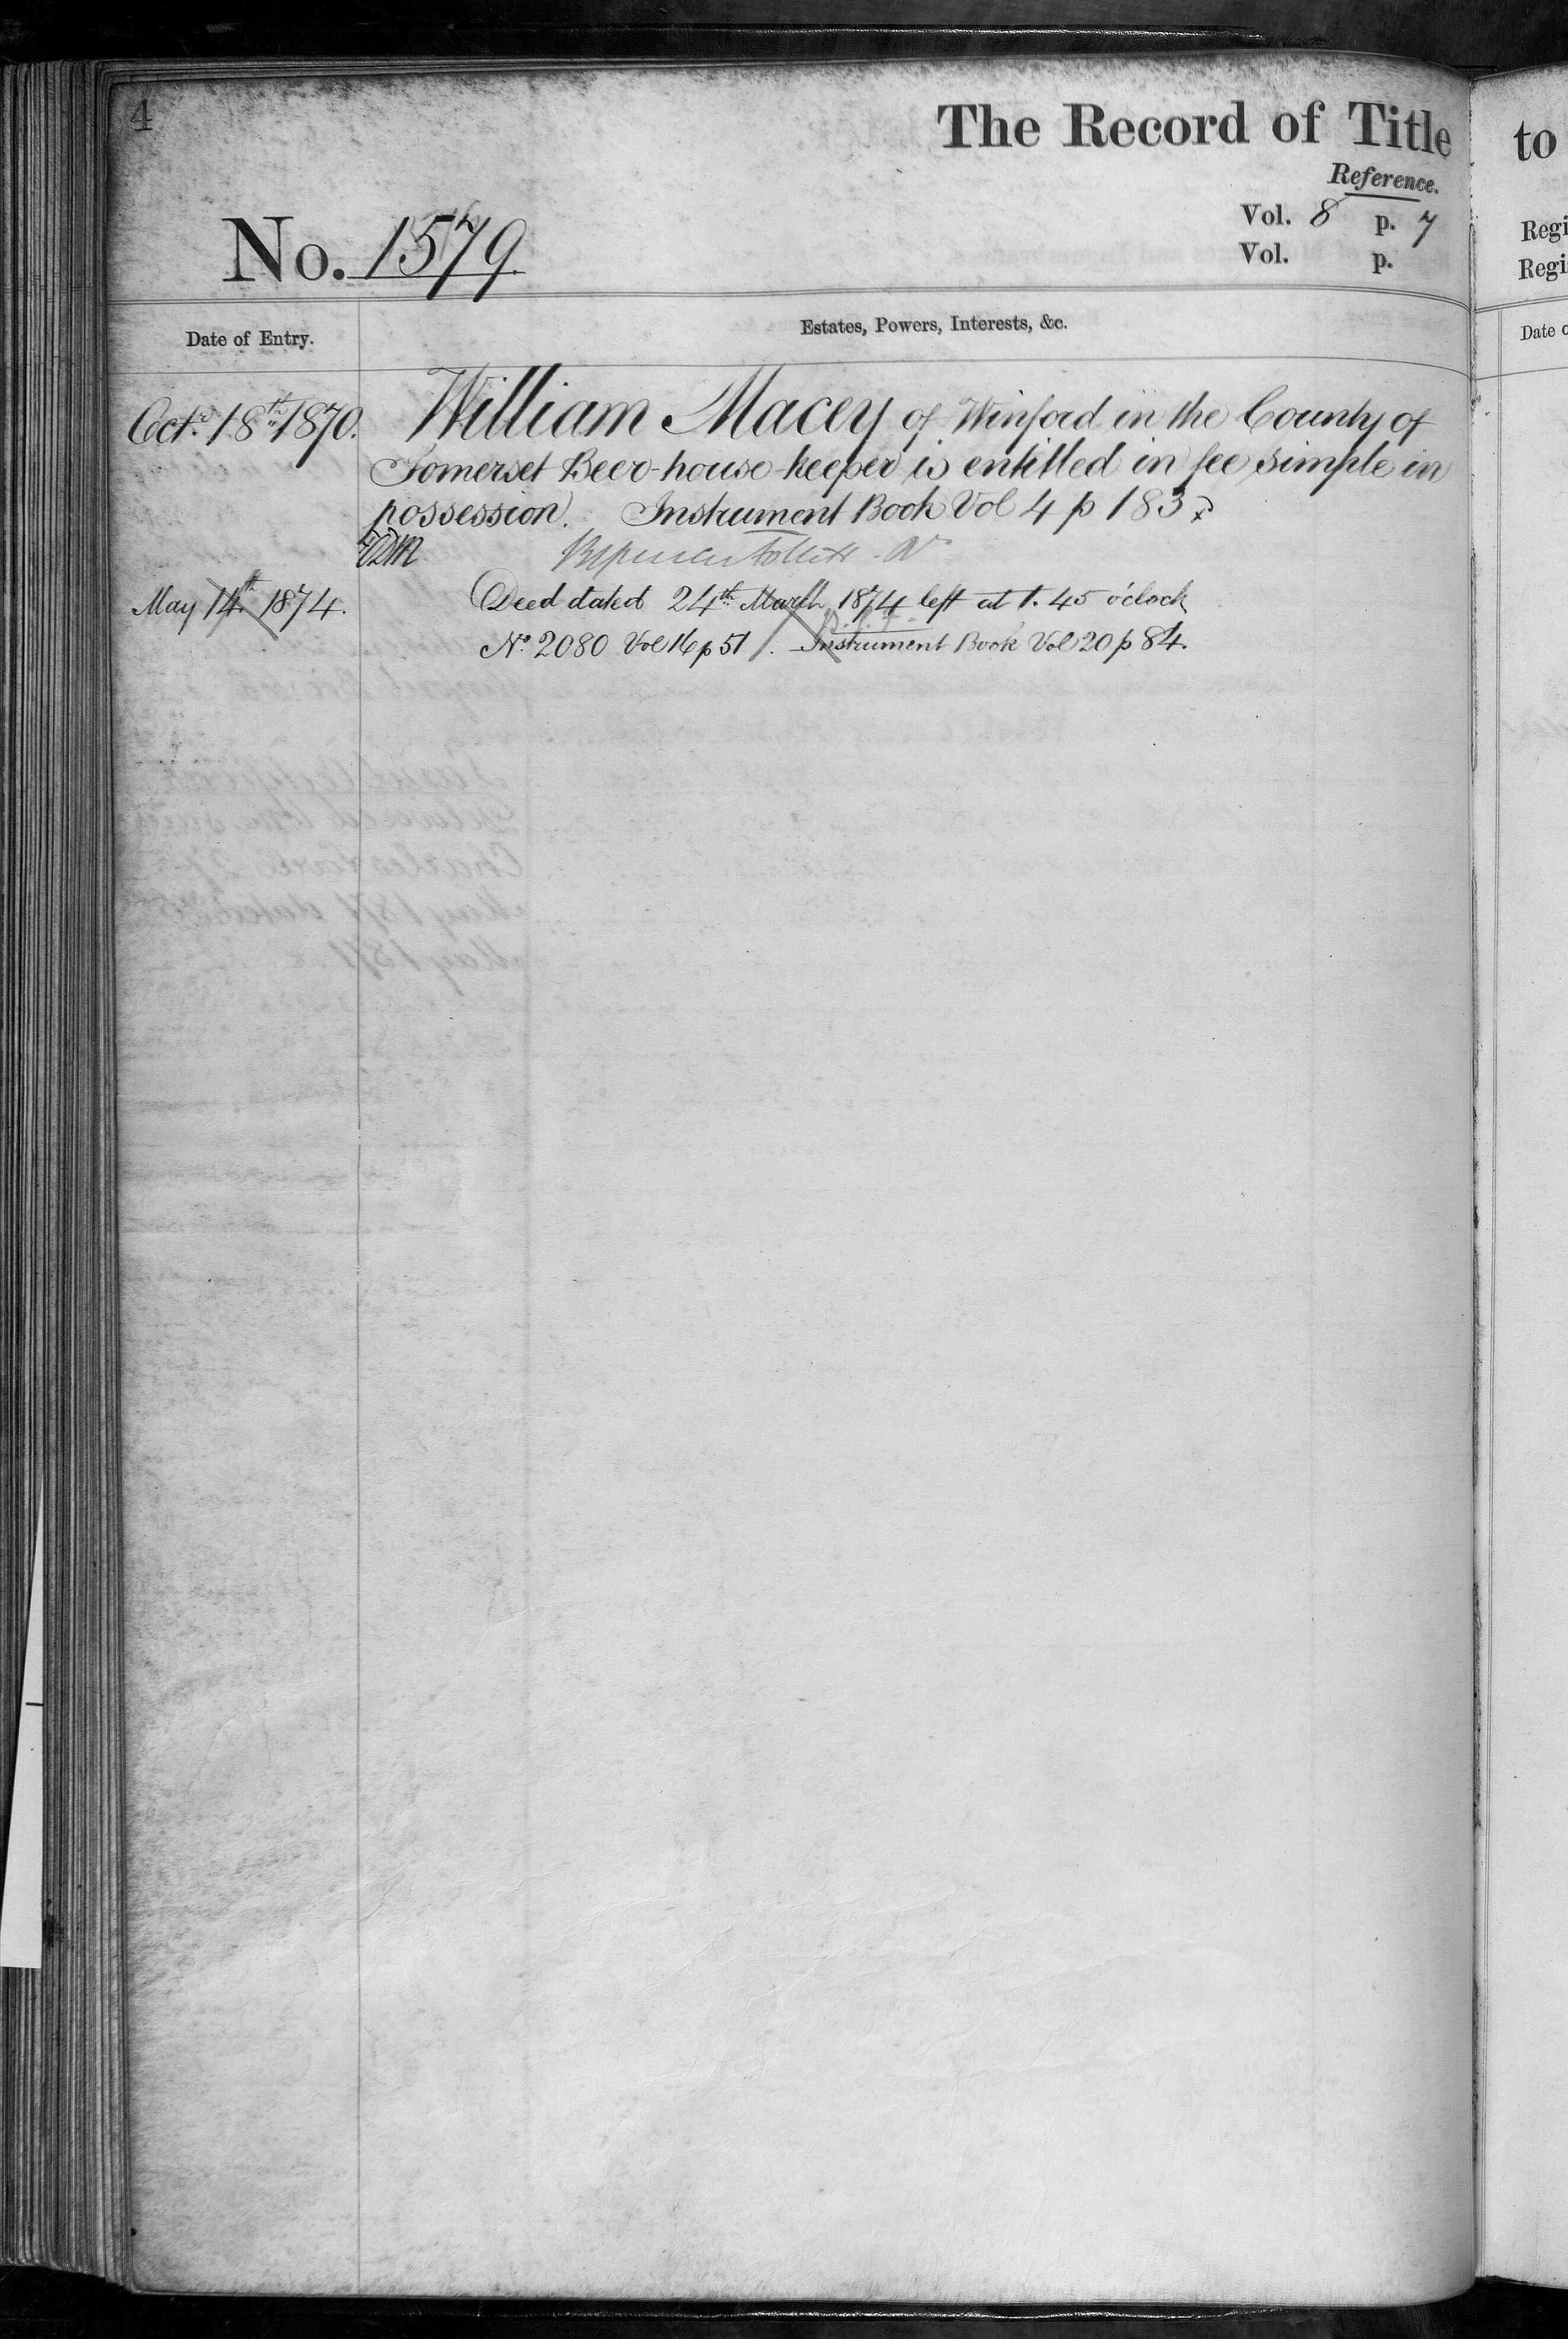 4
The Record of Title
Reference.
Vol. 8 p. 7
Vol. p.
No. 1579.
Date of Entry.
Estates, Powers, Interests, &c.
Octr. 18th 1870.
William Macey of Winford in the County of
Somerset Beer-house-keeper is entitled in fee simple in
possession. Instrument Book Vol 4 p 183
May 14th 1874.
Deed dated 24th March 1874 left at 1.45 o'clock
No. 2080 Vol 16 p 51. Instrument Book Vol 20 p 84.
to
Regi
Regi
Date